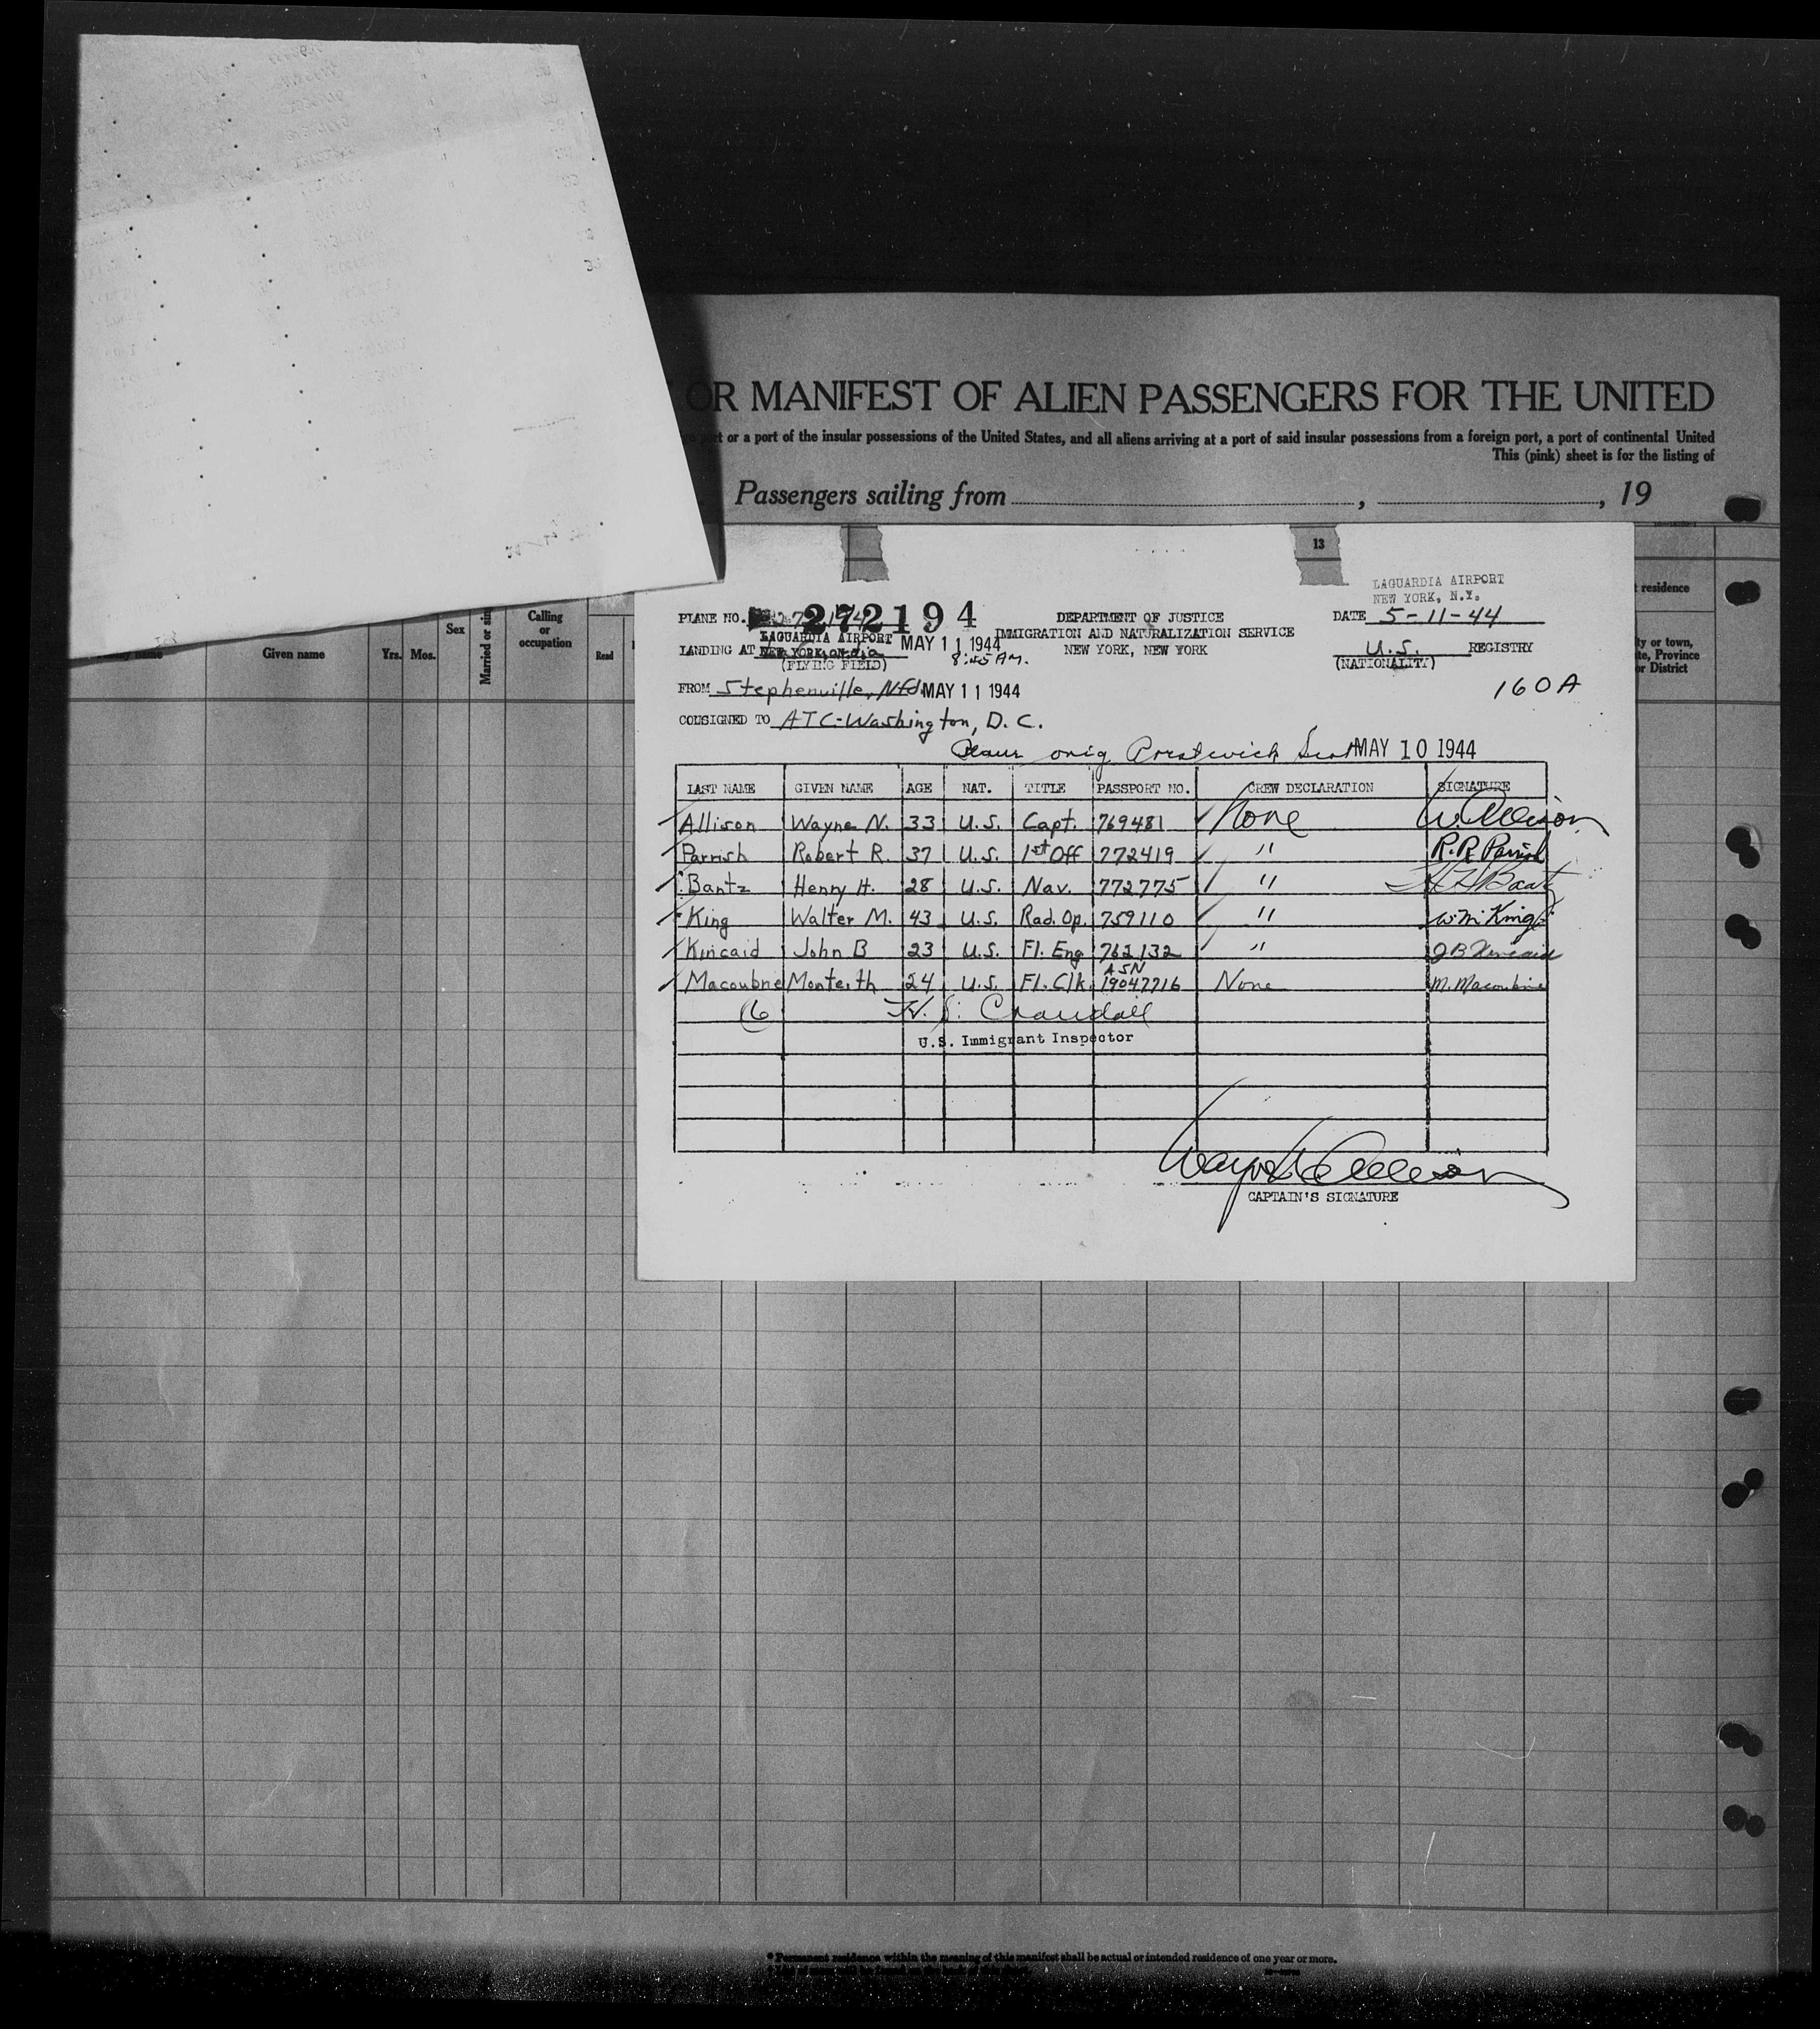 OR MANIFEST OF ALIEN PASSENGERS FOR THE UNITED
port or a port of the insular possessions of the United States, and all aliens arriving at a port of said insular possessions from a foreign port, a port of continental United
This (pink) sheet is for the listing of
Passengers sailing from , , 19
13
LAGUARDIA AIRPORT
NEW YORK, N.Y.
PLANE NO. 272194 DEPARTMENT OF JUSTICE DATE 5-11-44
LAGUARDIA AIRPORT MAY 11 1944 IMMIGRATION AND NATURALIZATION SERVICE
LANDING AT NEW YORK 8:45 AM. NEW YORK, NEW YORK U.S. REGISTRY
(FLYING FIELD) (NATIONALITY)
FROM Stephenville, Nfd. MAY 11 1944 160A
CONSIGNED TO ATC-Washington, D.C.
orig Prestwick Scot MAY 10 1944
LAST NAME GIVEN NAME AGE NAT. TITLE PASSPORT NO. CREW DECLARATION SIGNATURE
Allison Wayne N. 33 U.S. Capt. 769481 None W. Allison
Parrish Robert R. 37 U.S. 1st Off 772419 " R.R. Parrish
Bantz Henry H. 28 U.S. Nav. 772775 " H H Bantz
King Walter M. 43 U.S. Rad. Op. 759110 " W.M. King
Kincaid John B 23 U.S. Fl. Eng 762132 " J B Kincaid
ASN
Macoubrie Monteith 24 U.S. Fl. Clk. 19047716 None M. Macoubrie
(6 Crandall
U.S. Immigrant Inspector
Wayne N Allison
CAPTAIN'S SIGNATURE
name
Given name
Yrs. Mos.
Sex
Married or sin
Calling
or
occupation
Read
residence
ty or town,
te, Province
or District
* Permanent residence within the meaning of this manifest shall be actual or intended residence of one year or more.